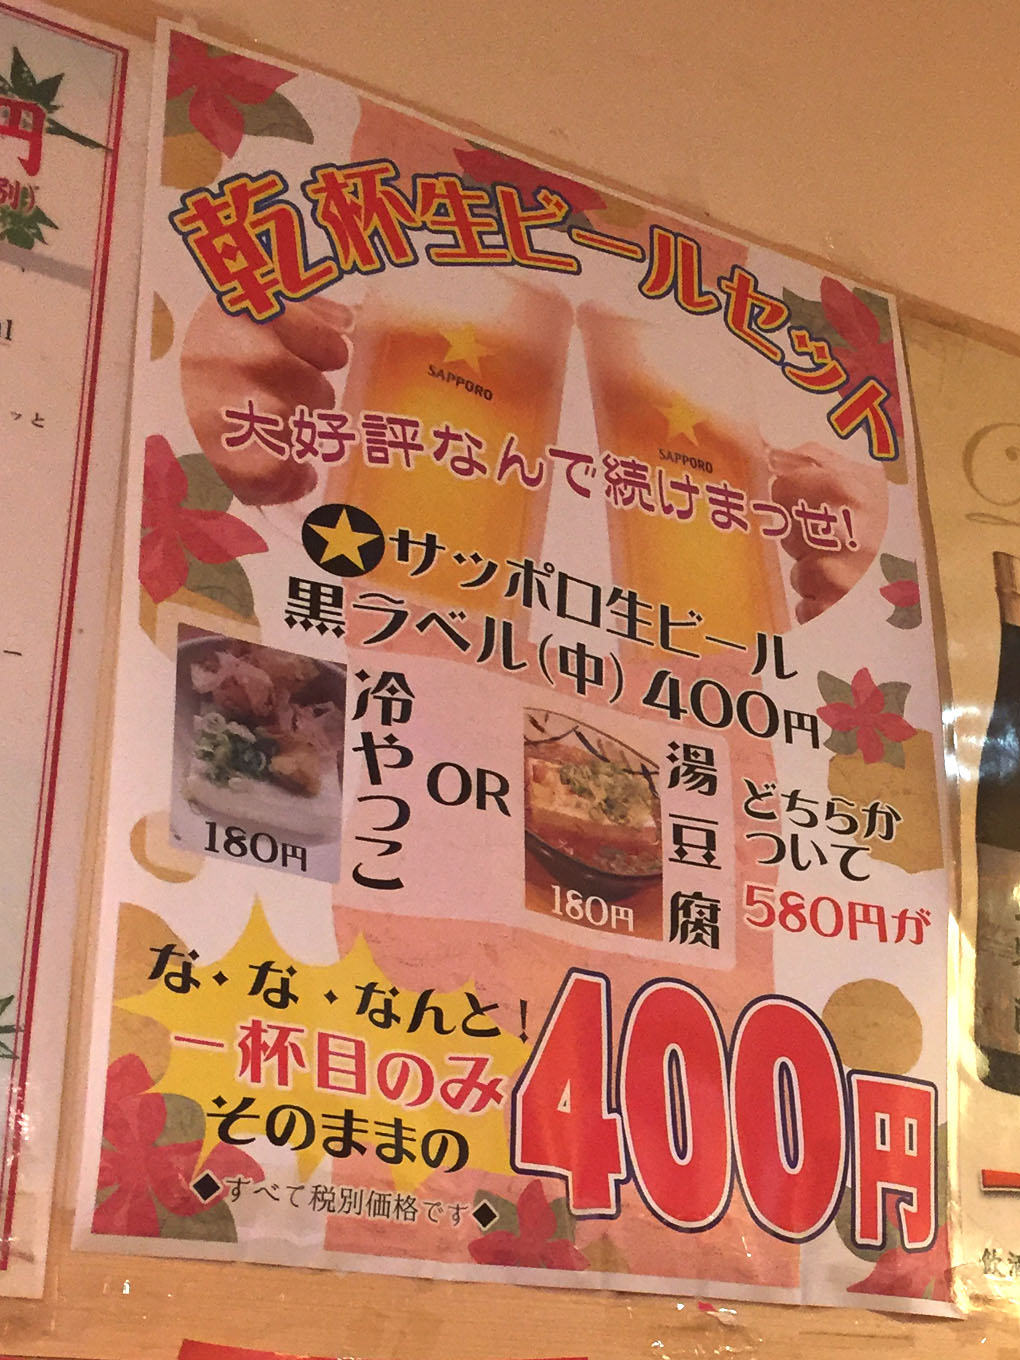 円
別)
ッと
乾杯生ビールセット
SAPPORO
SAPPORO
大好評なんで続けまっせ!
サッポロ生ビール
黒ラベル(中) 400円
冷やっこ
180円
OR
湯豆腐
180円
どちらか
ついて
580円が
な・な・なんと!
一杯目のみ
そのままの
400円
◆すべて税別価格です◆
飲酒